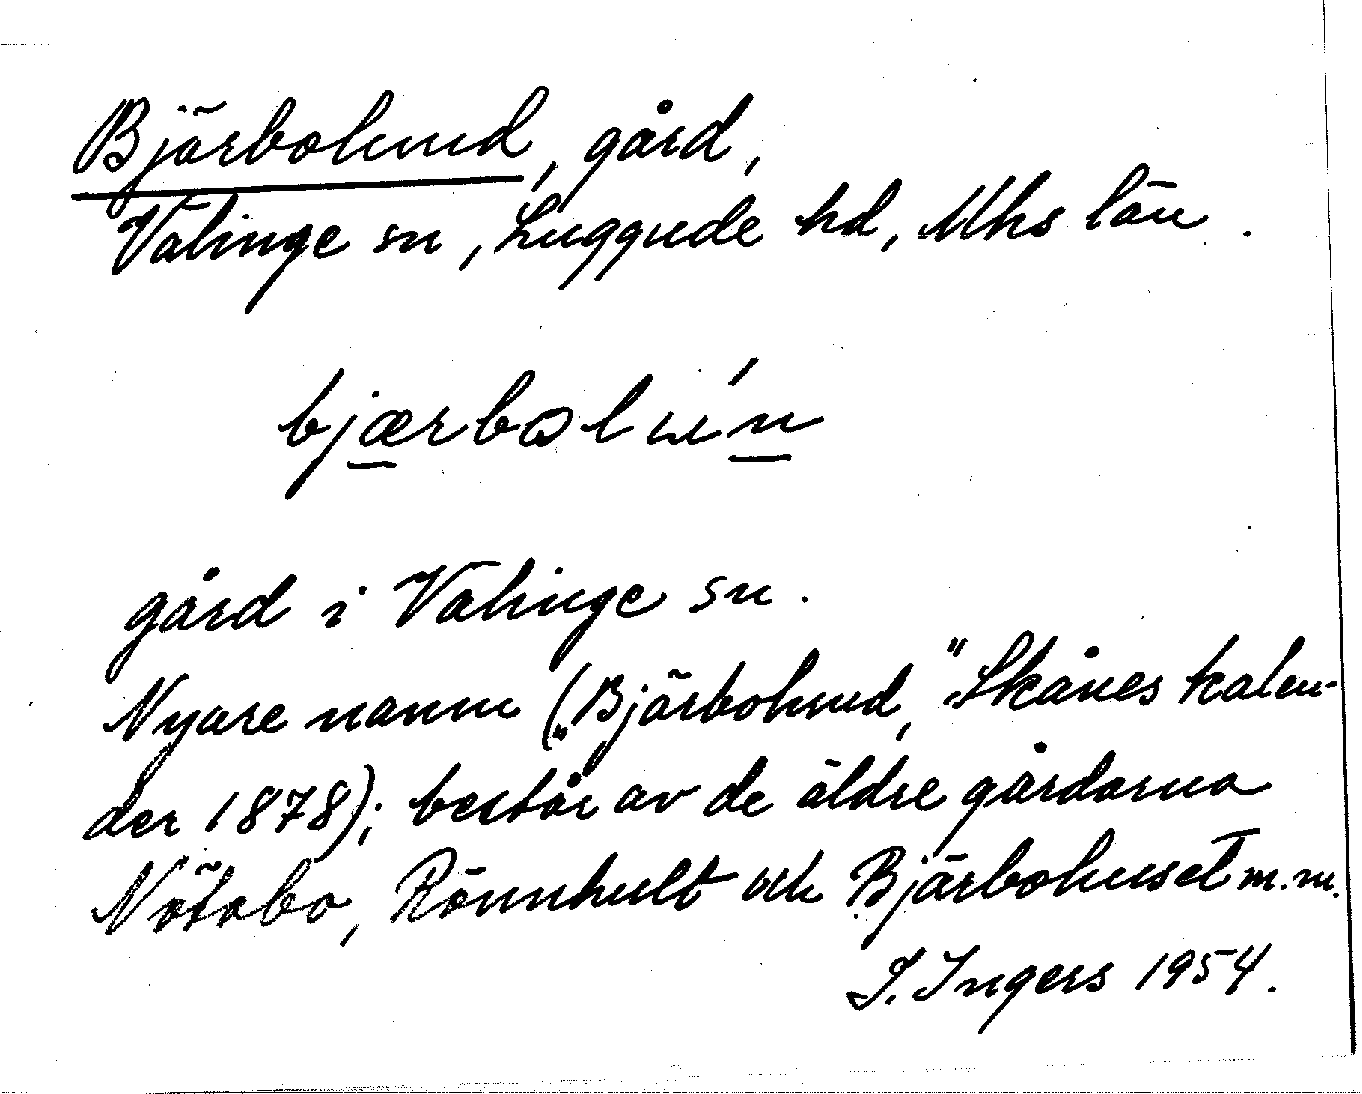 Bjärbolund, gård,
Välinge sn, Luggude hd, Mhs län.
gård i Välinge sn.
Nyare namn („Bjärbolund," Skånes kalen-
der 1878); består av de äldre gårdarna
Nötabo, Rönnhult och Bjärbohuset m.m.
I. Ingers 1954.